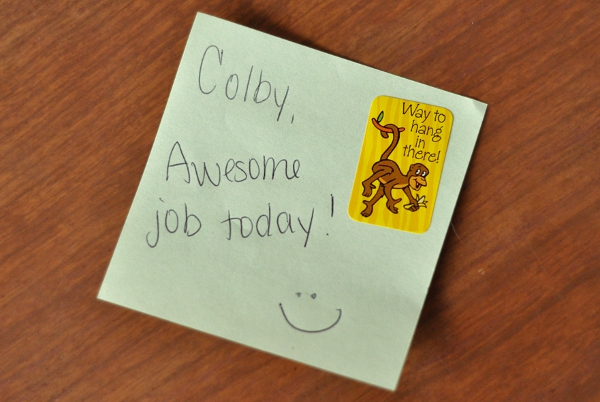 Colby,
Way to
hang
in
there!
Awesome
job today!